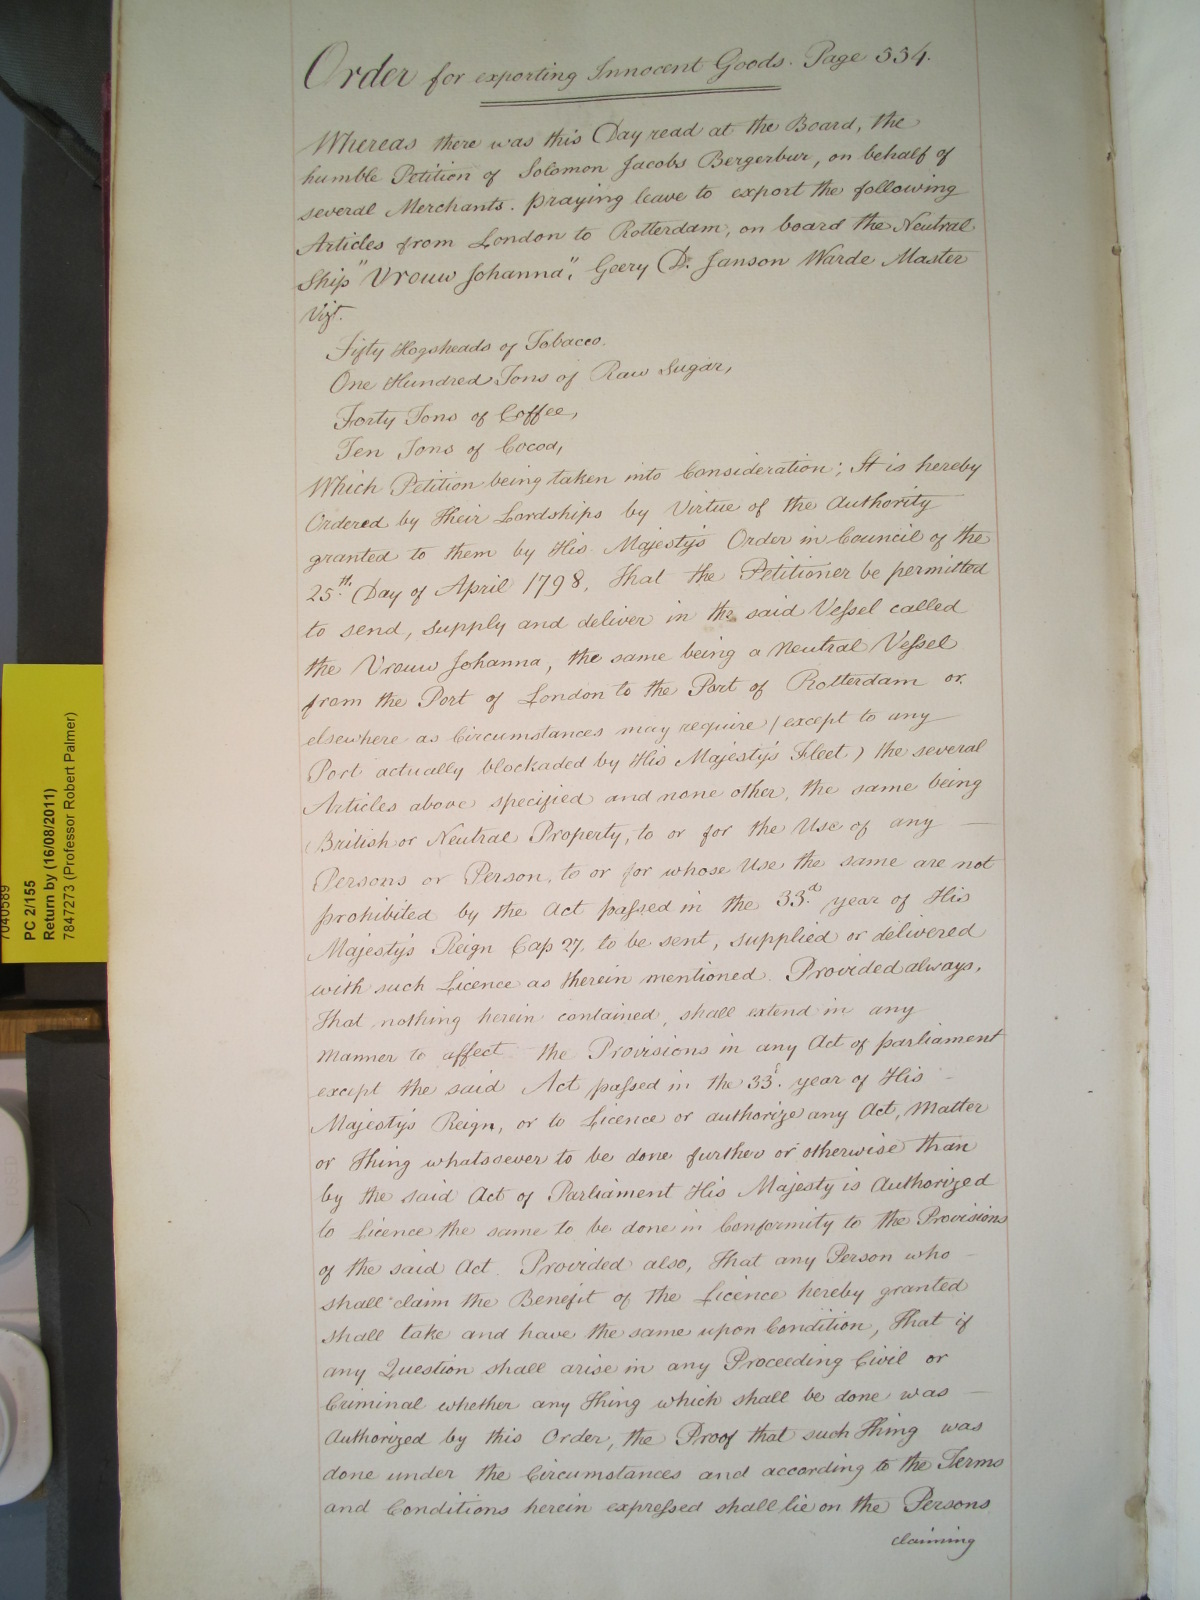 Order for exporting Innocent Goods. Page 334.
Whereas there was this Day read at the Board, the
humble Petition of Solomon Jacobs Bergerbur, on behalf of
several Merchants. praying leave to export the following
Articles from London to Rotterdam, on board the Neutral
Ship "Vrouw Johanna", Geery D. Janson Warde Master
Vizt.
Fifty Hogsheads of Tobacco.
One Hundred Tons of Raw Sugar,
Forty Tons of Coffee,
Ten Tons of Cocoa,
Which Petition being taken into Consideration; It is hereby
Ordered by Their Lordships by Virtue of the Authority
granted to them by His Majesty's Order in Council of the
25th. Day of April 1798, That the Petitioner be permitted
to send, supply and deliver in the said Vessel called
the Vrouw Johanna, the same being a Neutral Vessel
from the Port of London to the Port of Rotterdam or
elsewhere as Circumstances may require (except to any
Port actually blockaded by His Majesty's Fleet) the several
Articles above specified and none other, the same being
British or Neutral Property, to or for the Use of any
Persons or Person, to or for whose Use the same are not
prohibited by the Act passed in the 33d. year of His
Majesty's Reign Cap 27, to be sent, supplied or delivered
with such Licence as therein mentioned. Provided always,
That nothing herein contained, shall extend in any
manner to affect the Provisions in any Act of parliament
except the said Act passed in the 33d. year of His
Majesty's Reign, or to Licence or authorize any Act, Matter
or Thing whatsoever to be done further or otherwise than
by the said Act of Parliament His Majesty is Authorized
to Licence the same to be done in Conformity to the Provisions
of the said Act. Provided also, That any Person who
shall claim the Benefit of the Licence hereby granted
shall take and have the same upon Condition, That if
any Question shall arise in any Proceeding Civil or
Criminal whether any Thing which shall be done was
Authorized by this Order, the Proof that such Thing was
done under the Circumstances and according to the Terms
and Conditions herein expressed shall lie on the Persons
claiming
7040589
PC 2/155
Return by (16/08/2011)
7847273 (Professor Robert Palmer)